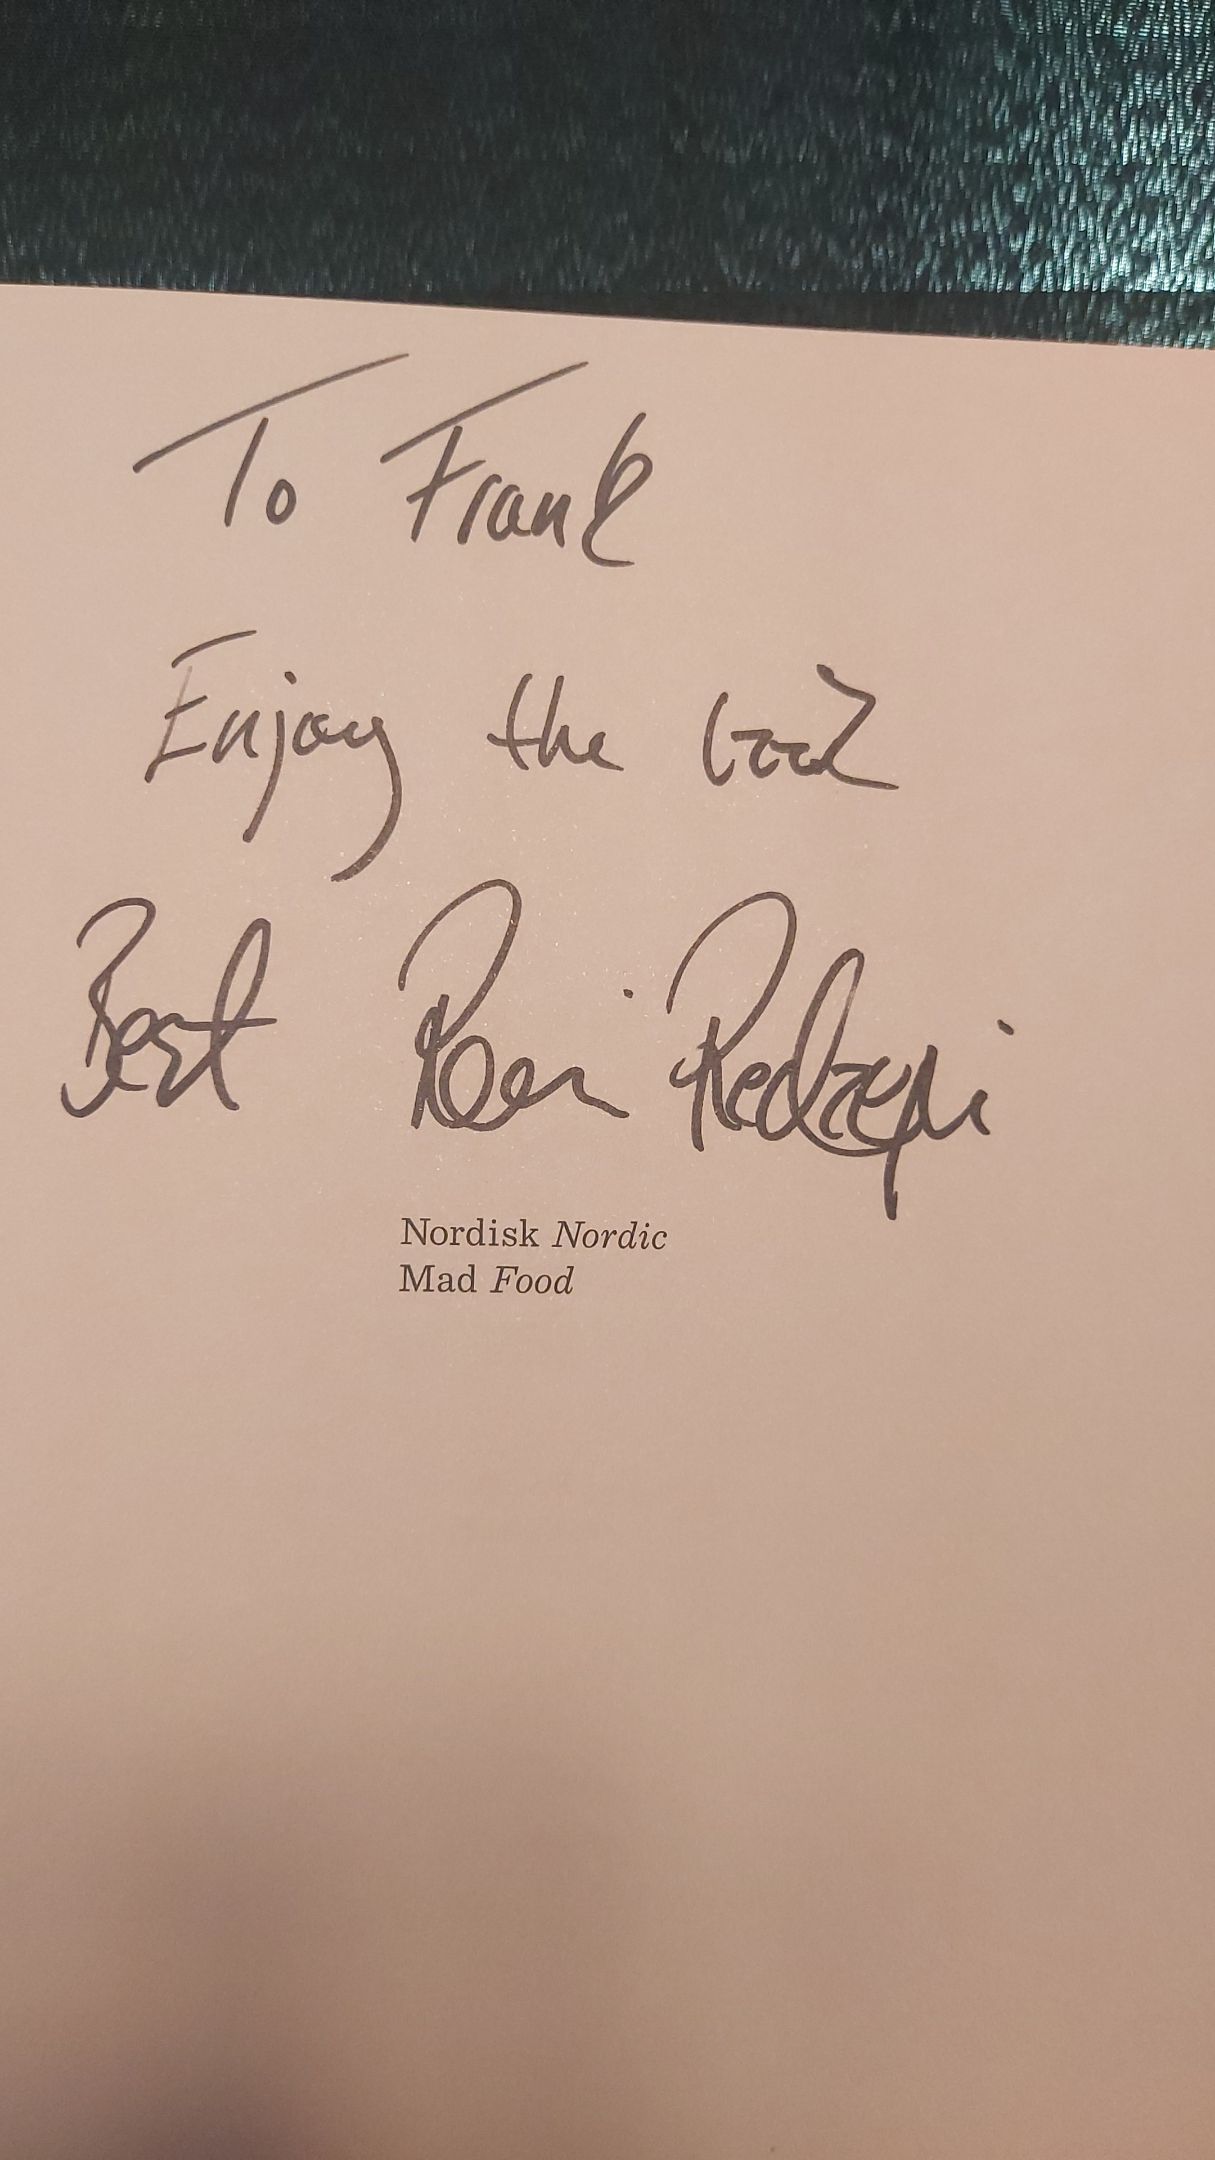 To Frank
Enjoy the book
Best René Redzepi
Nordisk Nordic
Mad Food